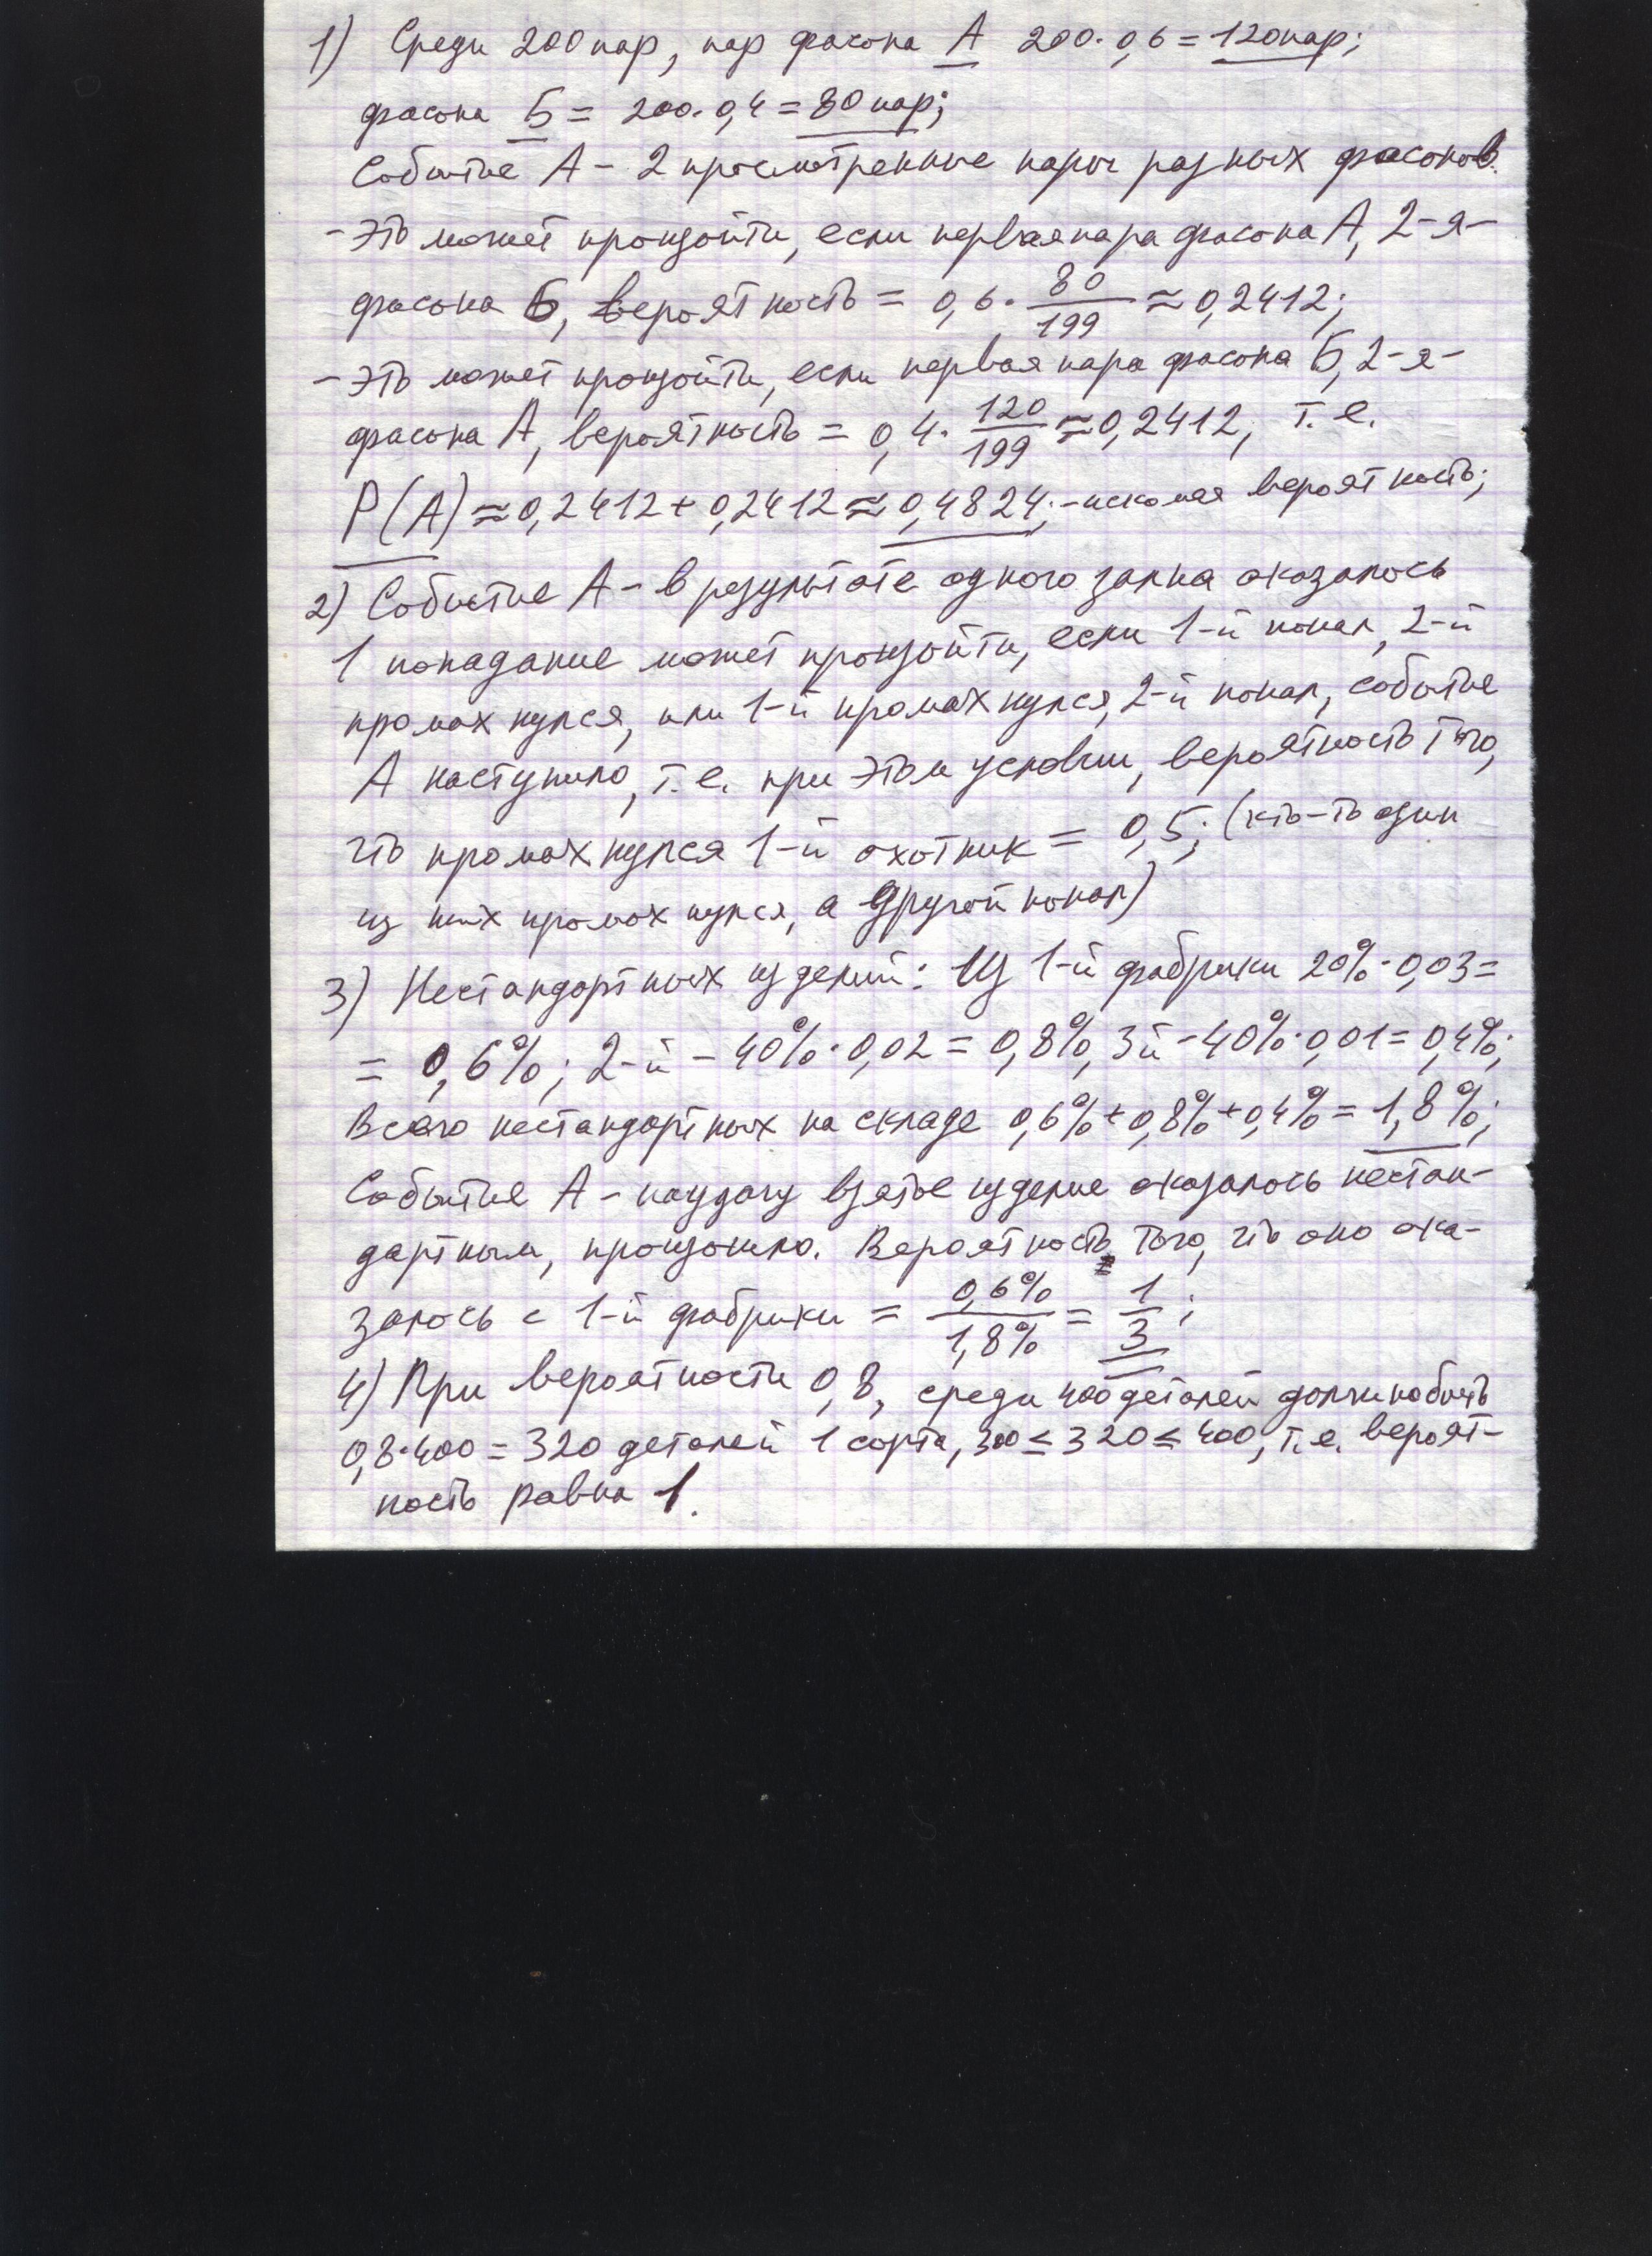 1) Среди 200 пар, пар фасона А 200·0,6=120 пар;
фасона Б = 200·0,4=80 пар;
Событие А – 2 просмотренные пары разных фасонов.
– это может произойти, если первая пара фасона А, 2-я –
фасона Б, вероятность = 0,6·80/199≈0,2412;
– это может произойти, если первая пара фасона Б, 2-я –
фасона А, вероятность = 0,4·120/199≈0,2412, т.е.
Р(А)≈0,2412+0,2412≈0,4824;– искомая вероятность;
2) Событие А – в результате одного залпа оказалось
1 попадание может произойти, если 1-й попал, 2-й
промахнулся, или 1-й промахнулся, 2-й попал, событие
А наступило, т.е. при этом условии, вероятность того,
что промахнулся 1-й охотник = 0,5; (кто-то один
из них промахнулся, а другой попал)
3) Нестандартных изделий: Из 1-й фабрики 20%·0,03=
= 0,6%; 2-й – 40%·0,02=0,8%, 3й – 40%·0,01=0,4%;
Всего нестандартных на складе 0,6%+0,8%+0,4%=1,8%;
Событие А – наудачу взятое изделие оказалось нестан-
дартным, произошло. Вероятность того, что оно ока-
залось с 1-й фабрики = 0,6%/1,8% = 1/3;
4) При вероятности 0,8, среди 400 деталей должно быть
0,8·400=320 деталей 1 сорта, 300≤320≤400, т.е. вероят-
ность равна 1.